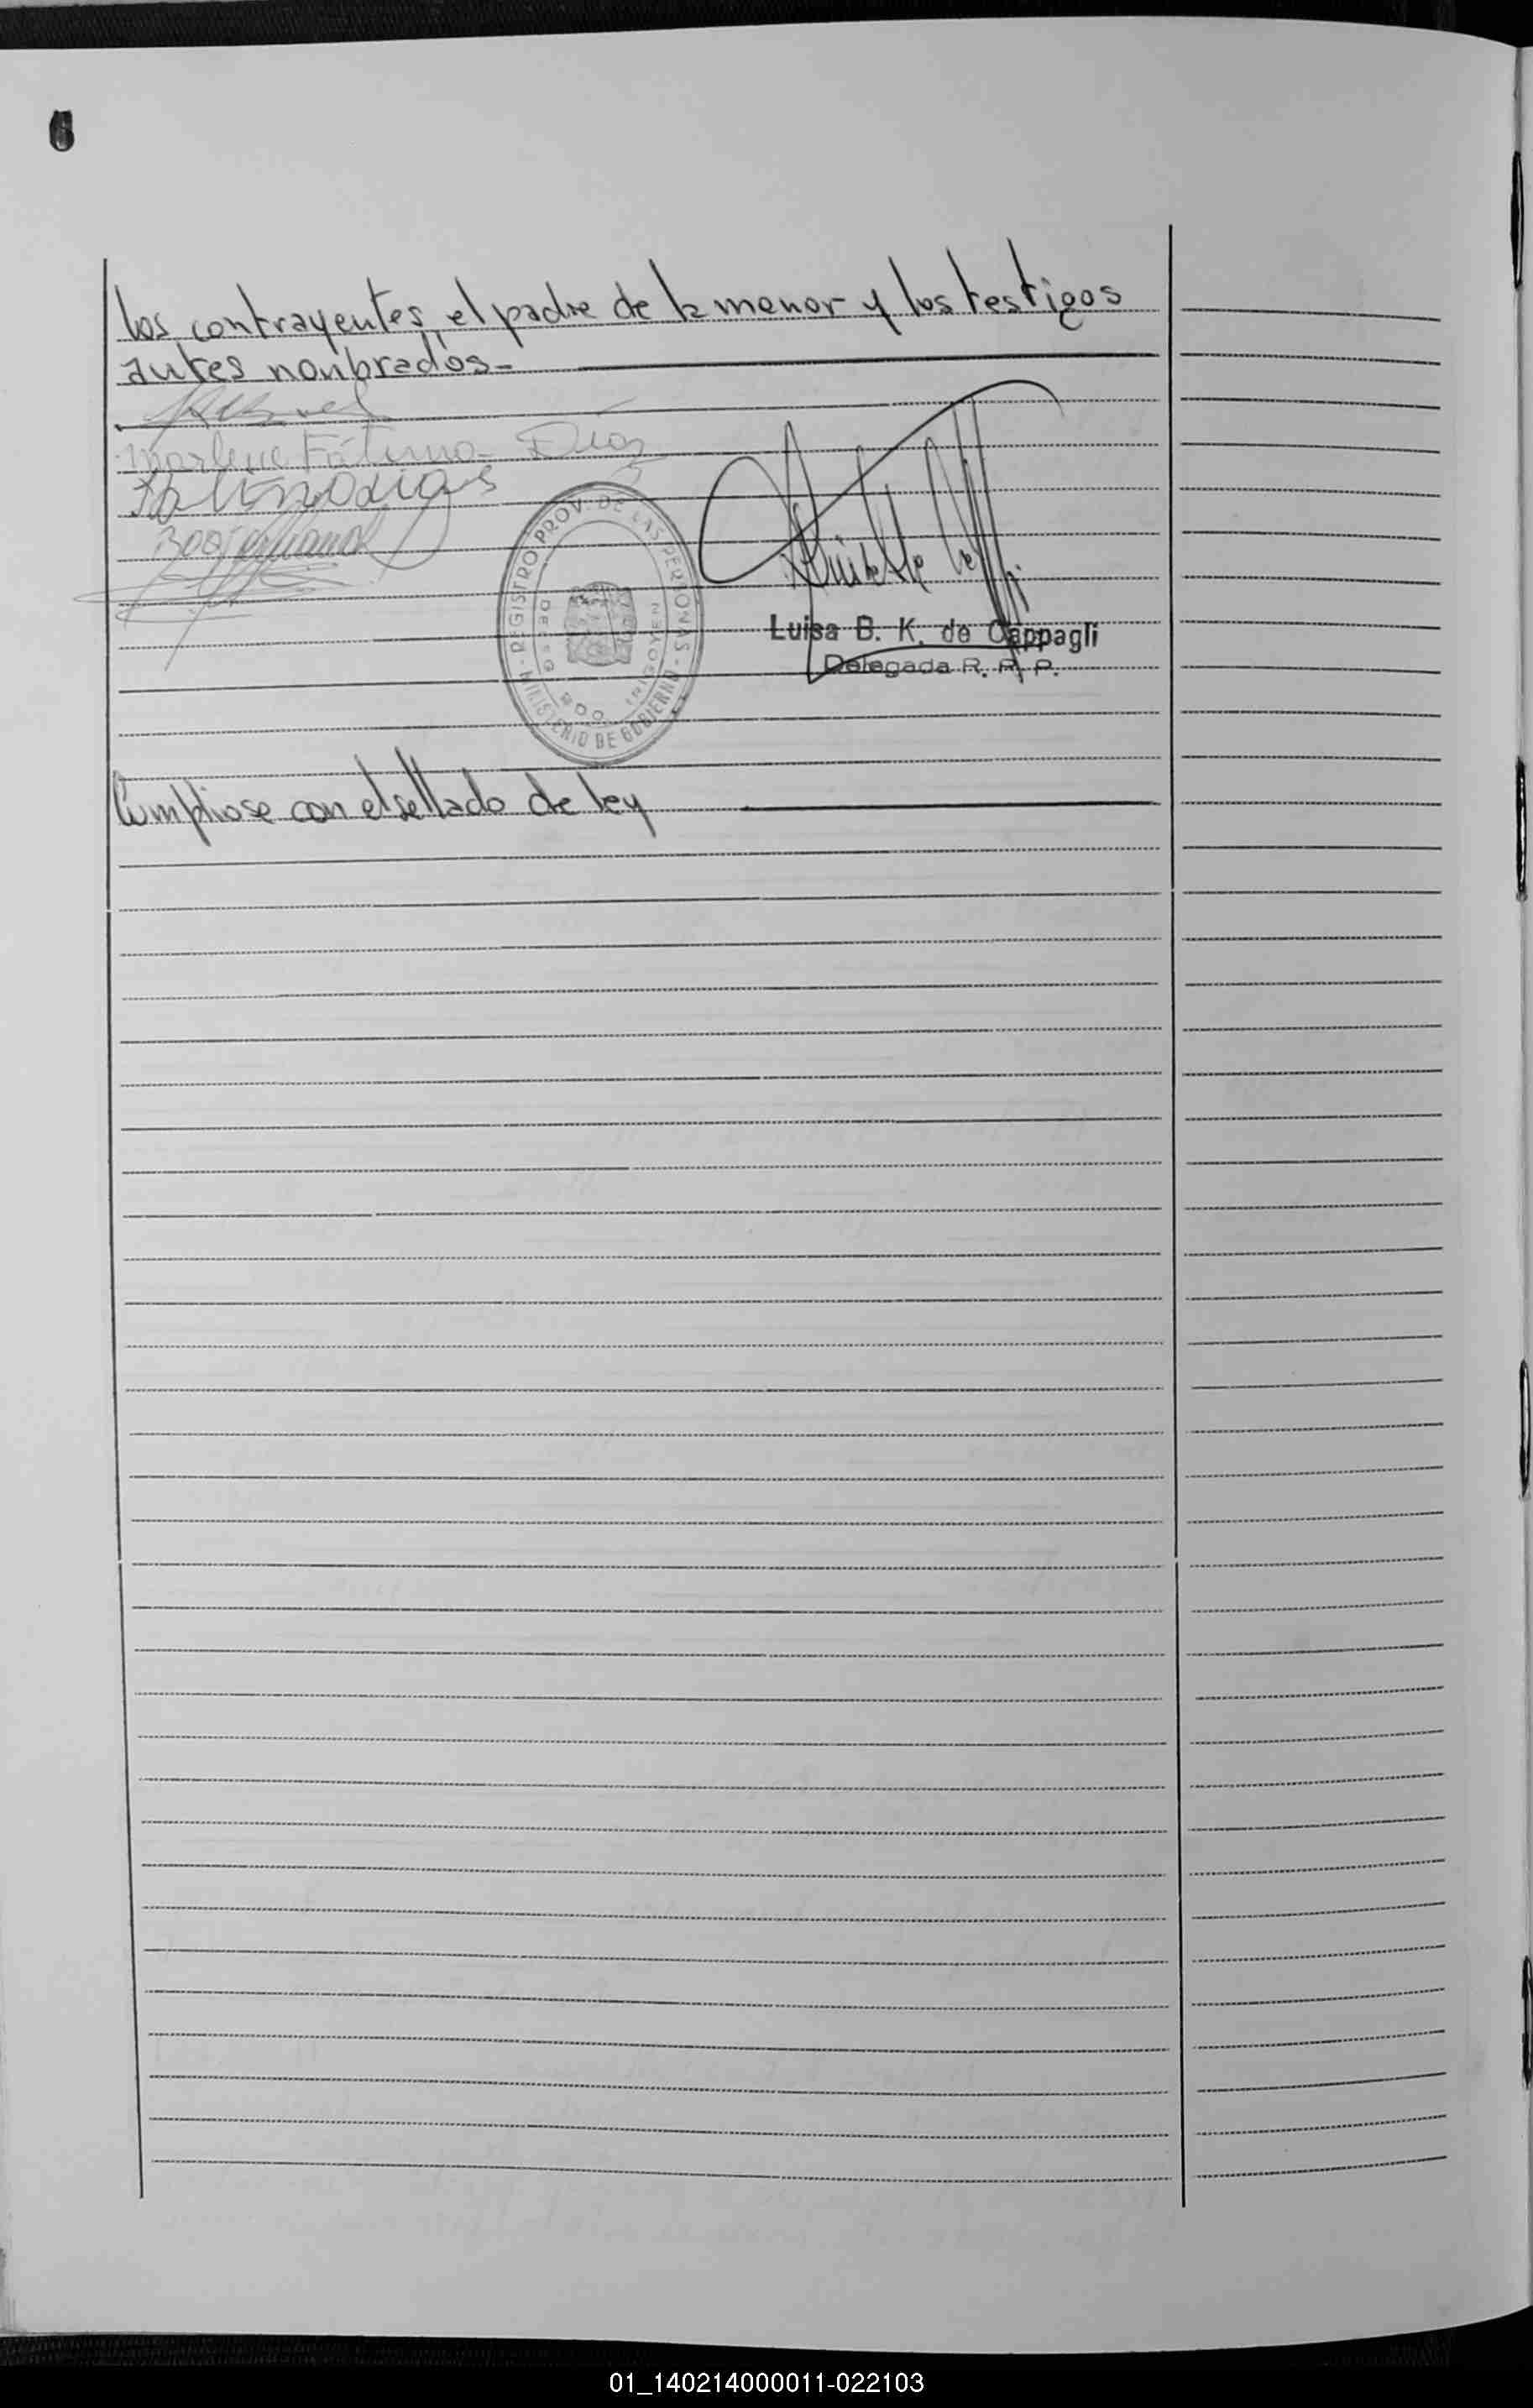 6
los contrayentes, el padre de la menor y los testigos
antes nonbrados-
Marlene Fátima Díaz
REGISTRO PROV. DE LAS PERSONAS - MINISTERIO DE GOBIERNO -
IRIGOYEN
Luisa B. K. de Cappagli
Delegada R. P. P.
Cumpliose con el sellado de ley
01_140214000011-022103